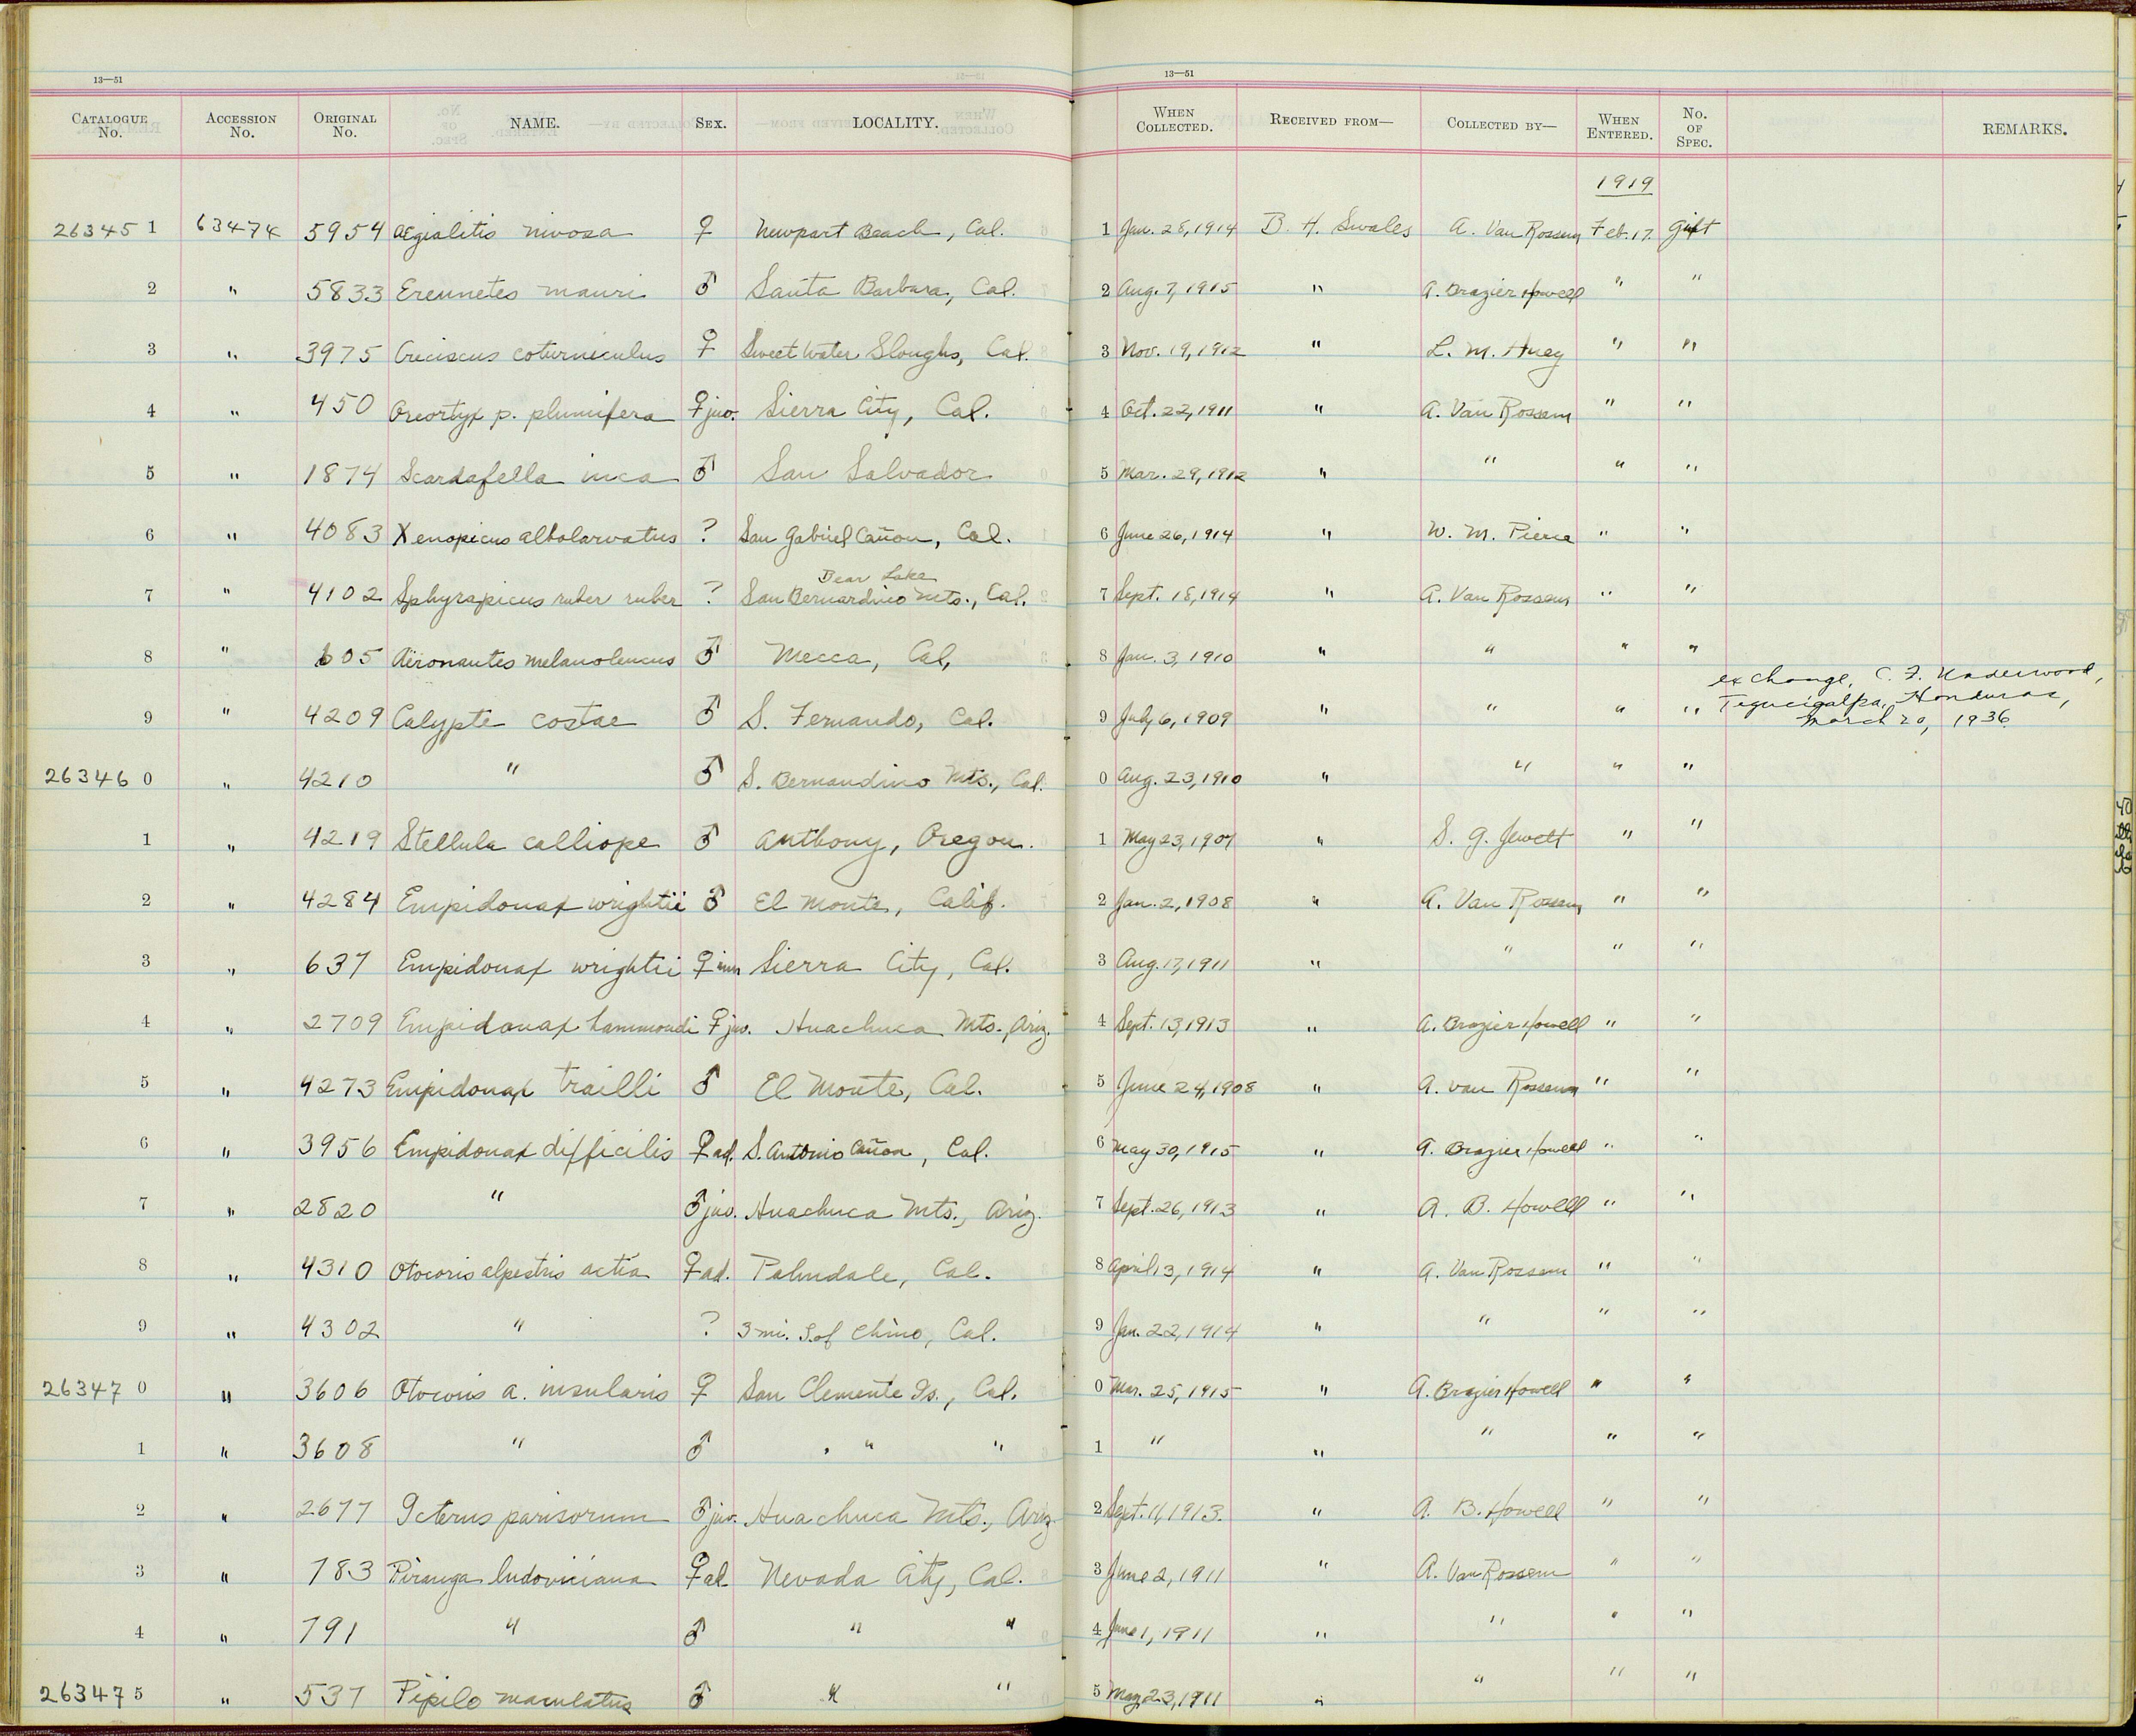 13—51 13—51
CATALOGUE No. ACCESSION No. ORIGINAL No. NAME. SEX. LOCALITY. WHEN COLLECTED. RECEIVED FROM— COLLECTED BY— WHEN ENTERED. No. OF SPEC. REMARKS.
1919
263451 63474 5954 Aegialitis nivosa ♀ Newport Beach, Cal. 1 Jan. 28, 1914 B. H. Swales A. Van Rossem Feb. 17. Gift
2 " 5833 Ereunetes mauri ♂ Santa Barbara, Cal. 2 Aug. 7, 1915 " A. Brazier Howell " "
3 " 3975 Creciscus coturniculus ♀ Sweet Water Sloughs, Cal. 3 Nov. 19, 1912 " L. M. Huey " "
4 " 450 Oreortyx p. plumifera ♀ juv. Sierra City, Cal. 4 Oct. 22, 1911 " A. Van Rossem " "
5 " 1874 Scardafella inca ♂ San Salvador 5 Mar. 29, 1912 " " " "
6 " 4083 Xenopicus albolarvatus ? San Gabriel Cañon, Cal. 6 June 26, 1914 " W. M. Pierce " "
Bear Lake
7 " 4102 Sphyrapicus ruber ruber ? San Bernardino Mts., Cal. 7 Sept. 18, 1914 " A. Van Rossem " "
8 " 605 Aëronautes melanoleucus ♂ Mecca, Cal. 8 Jan. 3, 1910 " " " "
exchange, C. F. Underwood,
Tegucigalpa, Honduras,
March 20, 1936.
9 " 4209 Calypte costae ♂ S. Fernando, Cal. 9 July 6, 1909 " " " "
263460 " 4210 " ♂ S. Bernandino Mts., Cal. 0 Aug. 23, 1910 " " " "
1 " 4219 Stellula calliope ♂ Anthony, Oregon. 1 May 23, 1907 " S. G. Jewett " "
2 " 4284 Empidonax wrightii ♂ El Monte, Calif. 2 Jan. 2, 1908 " A. Van Rossem " "
3 " 637 Empidonax wrightii ♀ im Sierra City, Cal. 3 Aug. 17, 1911 " " " "
4 " 2709 Empidonax hammondi ♀ juv. Huachuca Mts. Ariz. 4 Sept. 13, 1913 " A. Brazier Howell " "
5 " 4273 Empidonax trailli ♂ El Monte, Cal. 5 June 24, 1908 " A. van Rossem " "
6 " 3956 Empidonax difficilis ♀ ad. S. Antonio Cañon, Cal. 6 May 30, 1915 " A. Brazier Howell " "
7 " 2820 " ♂ juv. Huachuca Mts., Ariz. 7 Sept. 26, 1913 " A. B. Howell " "
8 " 4310 Otocoris alpestris actia ♀ ad. Palmdale, Cal. 8 April 13, 1914 " A. Van Rossem " "
9 " 4302 " ? 3 mi. S. of Chino, Cal. 9 Jan. 22, 1914 " " " "
263470 " 3606 Otocoris a. insularis ♀ San Clemente Is., Cal. 0 Mar. 25, 1915 " A. Brazier Howell " "
1 " 3608 " ♂ " " 1 " " " " "
2 " 2677 Icterus parisorum ♂ juv. Huachuca Mts., Ariz. 2 Sept. 11, 1913. " A. B. Howell " "
3 " 783 Piranga ludoviciana ♀ ad Nevada City, Cal. 3 June 2, 1911 " A. Van Rossem " "
4 " 791 " ♂ " " 4 June 1, 1911 " " " "
263475 " 537 Pipilo maculatus ♂ " " 5 May 23, 1911 " " " "